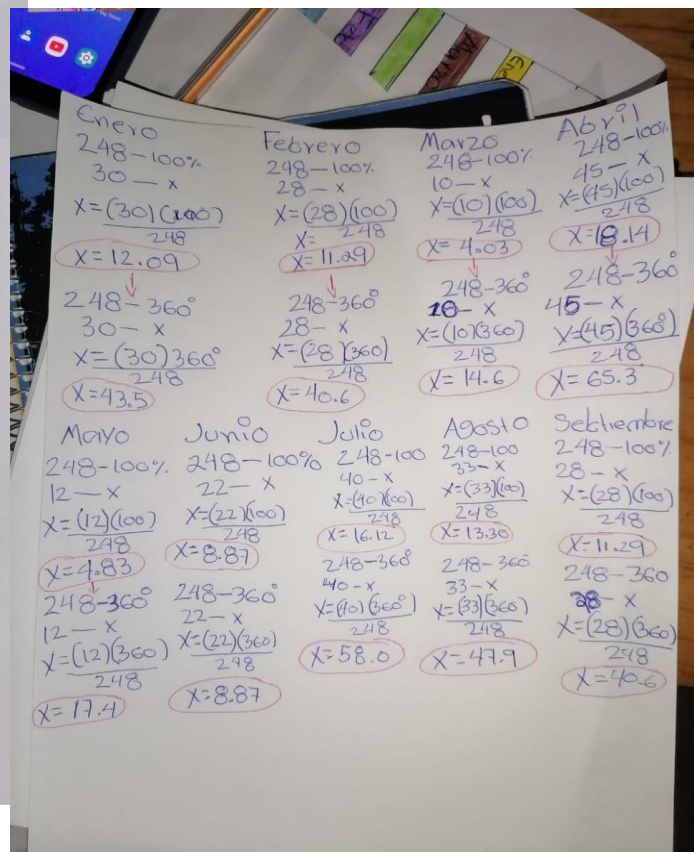 Play Store
Marzo
Enero
248-100%
30-x
X=(30)(100)
248
X=12.09
248-360°
30-x
X=(30)360°
248
X=43.5
Febrero
248-100%
28-x
X=(28)(100)
X= 248
X=11.29
248-360°
28-x
X=(28)(360)
248
X=40.6
Marzo
248-100%
10-x
X=(10)(100)
248
X=4.03
248-360°
10-x
X=(10)(360)
248
X=14.6
Abril
248-100%
45-x
X=(45)(100)
248
X=18.14
248-360°
45-x
X=(45)(360°)
248
X=65.3
Mayo
248-100%
12-x
X=(12)(100)
248
X=4.83
248-360°
12-x
X=(12)(360)
248
X=17.4
Junio
248-100%
22-x
X=(22)(100)
248
X=8.87
248-360°
22-x
X=(22)(360)
248
X=8.87
Julio
248-100
40-x
X=(40)(100)
248
X=16.12
248-360°
40-x
X=(40)(360°)
248
X=58.0
Agosto
248-100
33-x
X=(33)(100)
248
X=13.30
248-360
33-x
X=(33)(360)
248
X=47.9
Sebtiembre
248-100%
28-x
X=(28)(100)
248
X=11.29
248-360
28-x
X=(28)(360)
248
X=40.6